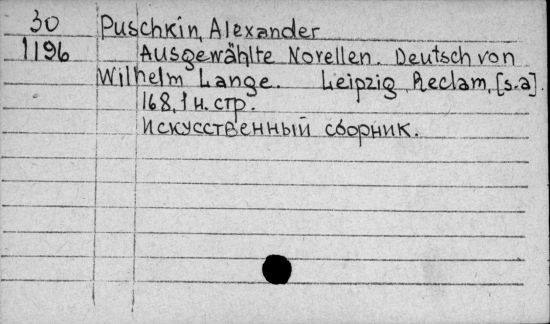 30 Puschkin, Alexander
1196 Ausgewählte Novellen. Deutsch von
Wilhelm Lange. Leipzig, Reclam, [s.a].
168, 1 н. стр.
Искусственный сборник.